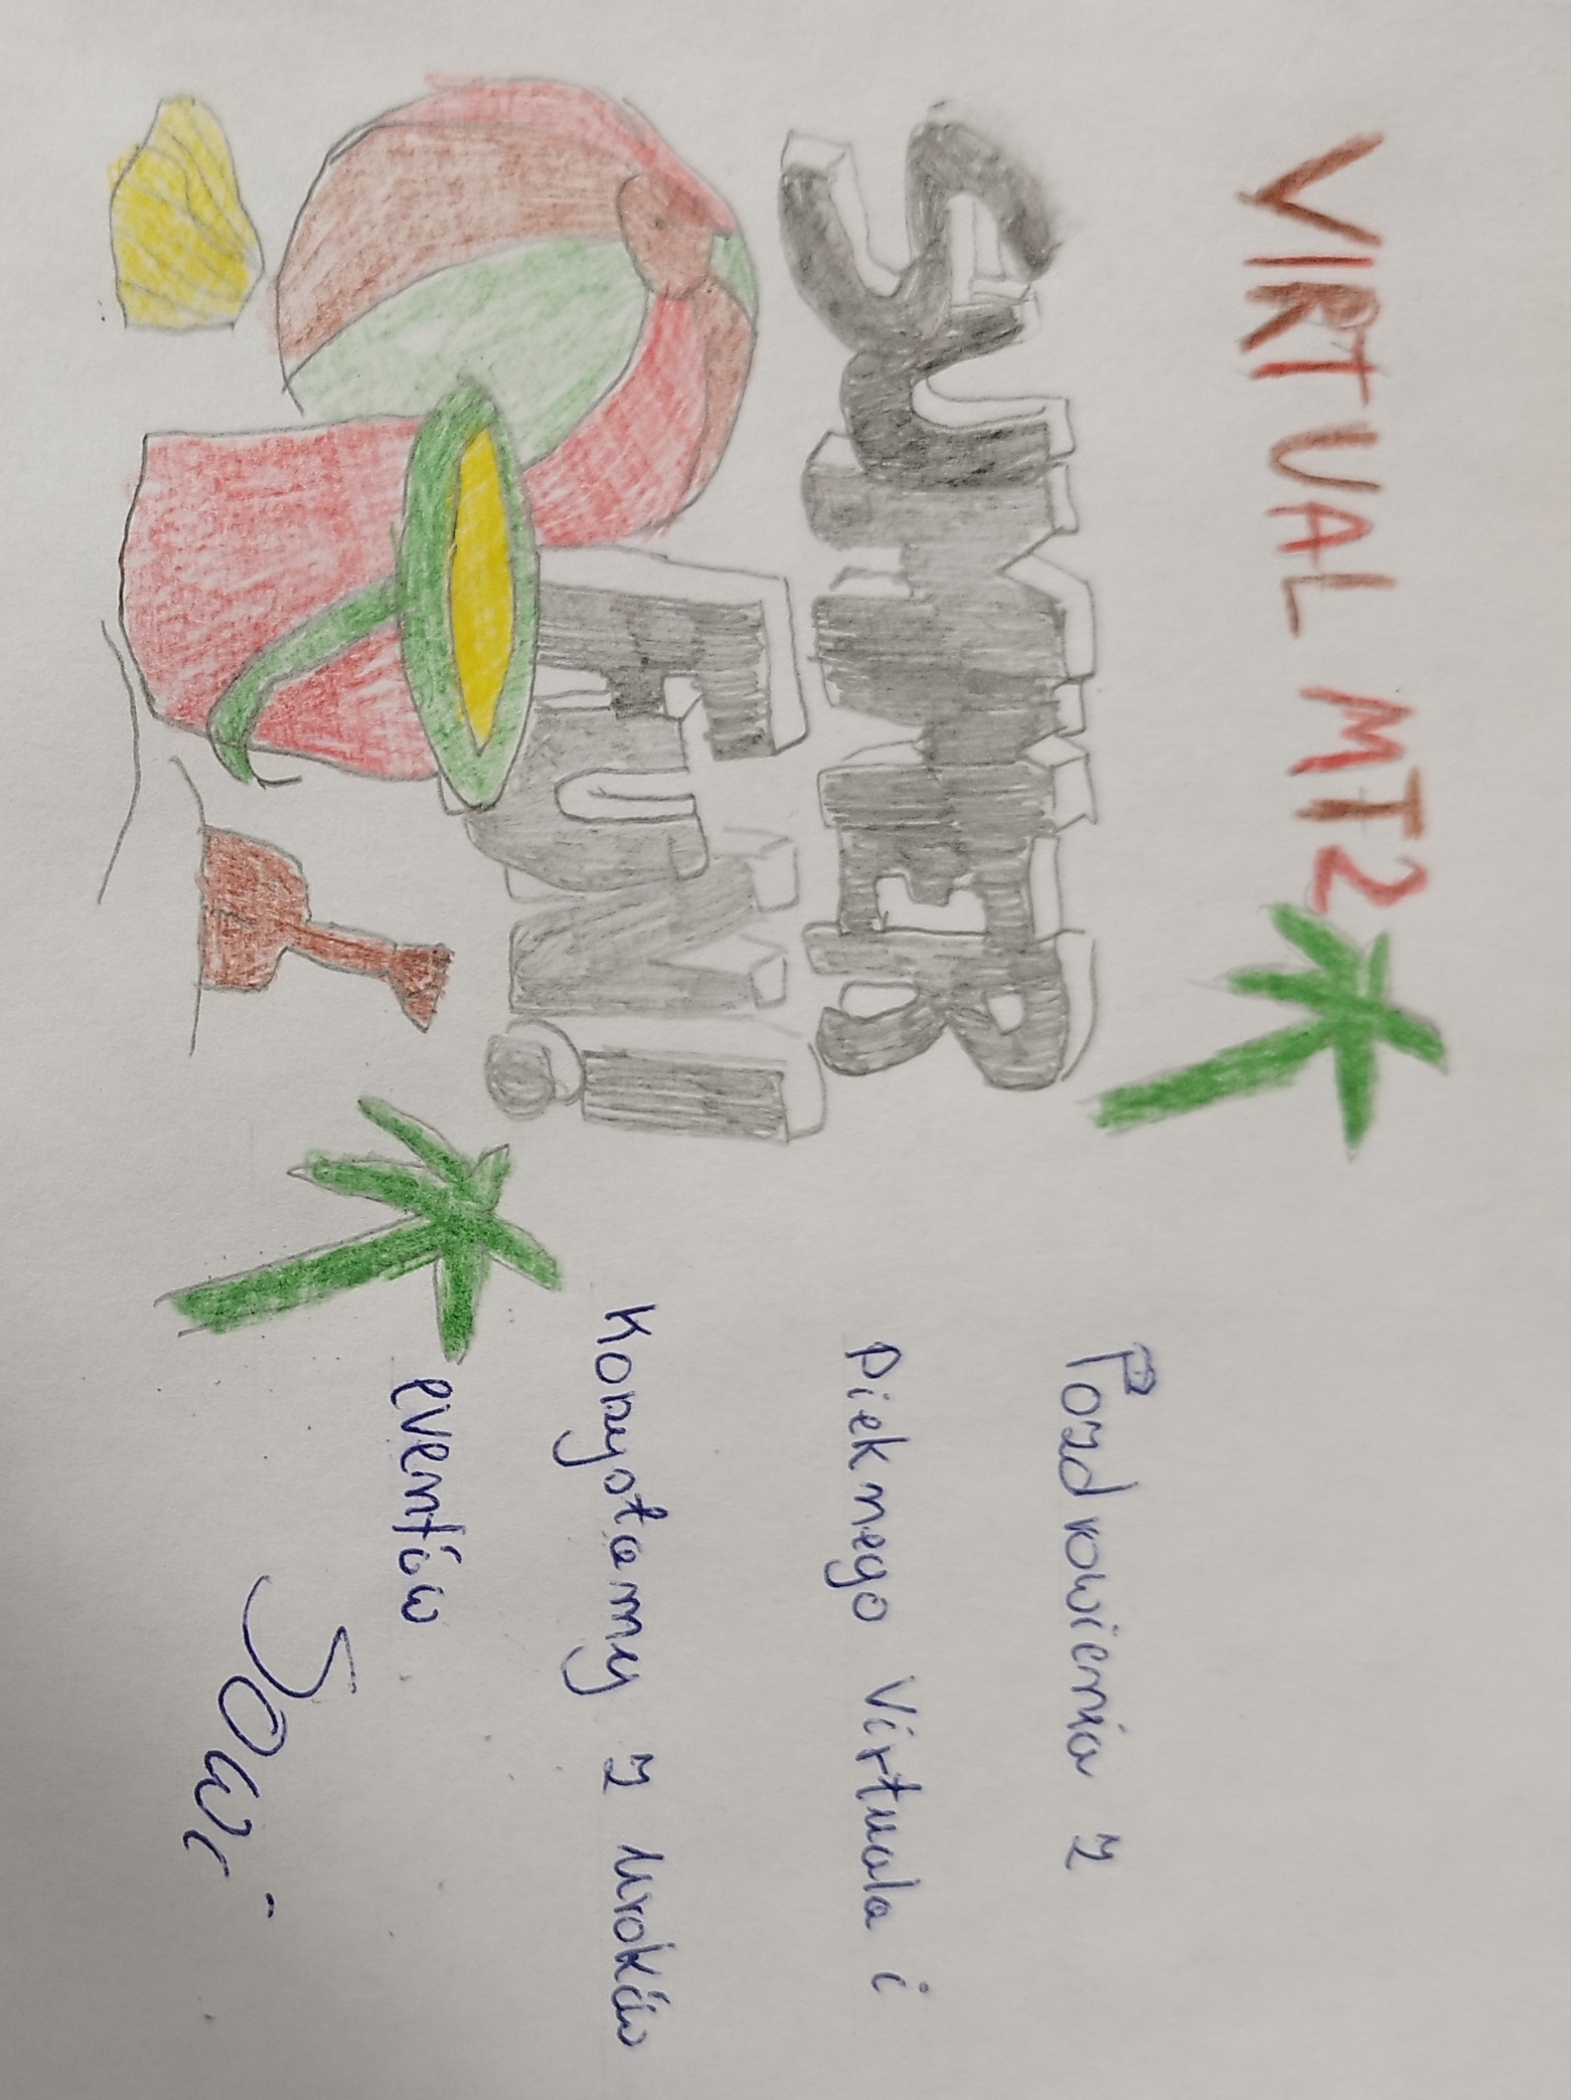 VIRTUAL MT2
SUMMER
FUN!
Pozdrowienia z
Pieknego Virtuala i
Korzystamy z uroków
eventów